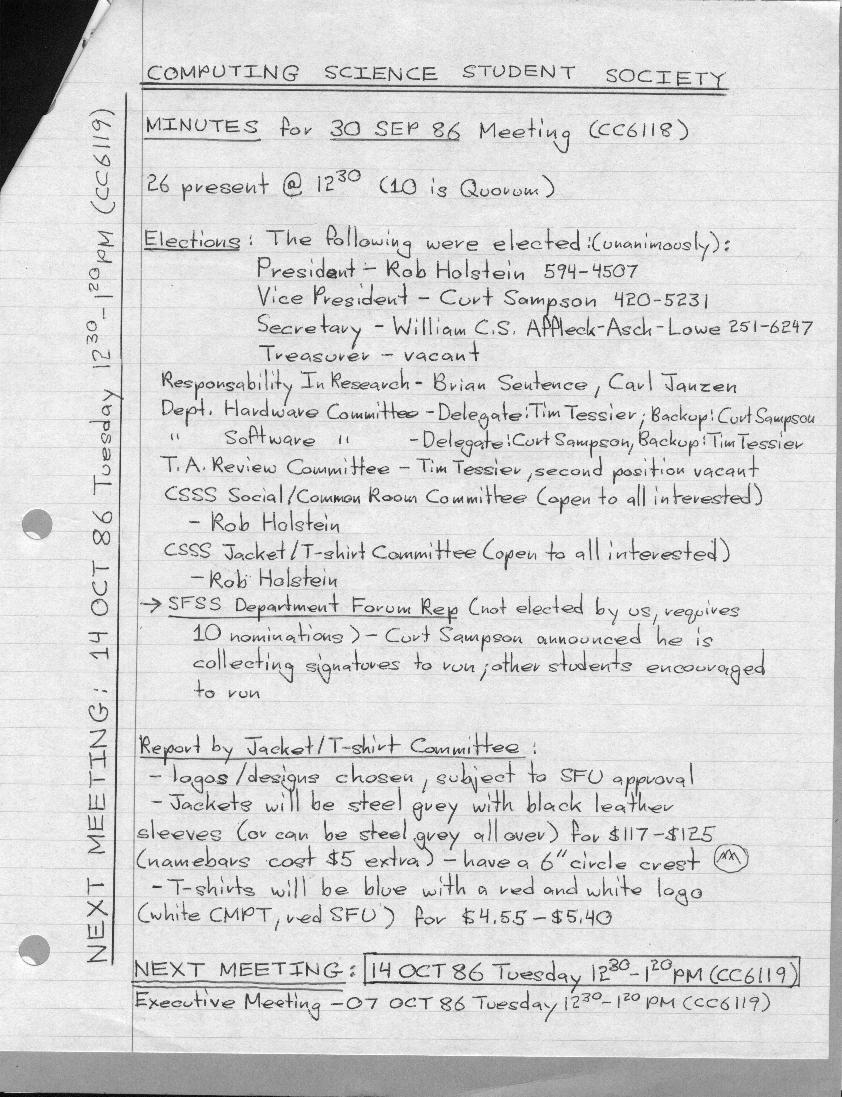 COMPUTING SCIENCE STUDENT SOCIETY
MINUTES for 30 SEP 86 Meeting (CC6118)
26 present @ 12³⁰ (10 is Quorum)
Elections: The following were elected:(unanimously):
President - Rob Holstein 594-4507
Vice President - Curt Sampson 420-5231
Secretary - William C.S. Affleck-Asch-Lowe 251-6247
Treasurer - vacant
Responsability In Research - Brian Sentence, Carl Janzen
Dept. Hardware Committee - Delegate: Tim Tessier; Backup: Curt Sampson
" Software " - Delegate: Curt Sampson, Backup: Tim Tessier
T.A. Review Committee - Tim Tessier, second position vacant
CSSS Social/Common Room Committee (open to all interested)
- Rob Holstein
CSSS Jacket/T-shirt Committee (open to all interested)
- Rob Holstein
→ SFSS Department Forum Rep (not elected by us, requires
10 nominations) - Curt Sampson announced he is
collecting signatures to run; other students encouraged
to run
Report by Jacket/T-shirt Committee:
- logos/designs chosen, subject to SFU approval
- Jackets will be steel grey with black leather
sleeves (or can be steel grey all over) for $117-$125
(namebars cost $5 extra) - have a 6" circle crest
- T-shirts will be blue with a red and white logo
(white CMPT, red SFU) for $4.55-$5.40
NEXT MEETING: 14 OCT 86 Tuesday 12³⁰-1²⁰ PM (CC6119)
Executive Meeting - 07 OCT 86 Tuesday 12³⁰-1²⁰ PM (CC6119)
NEXT MEETING: 14 OCT 86 Tuesday 12³⁰-1²⁰ PM (CC6119)